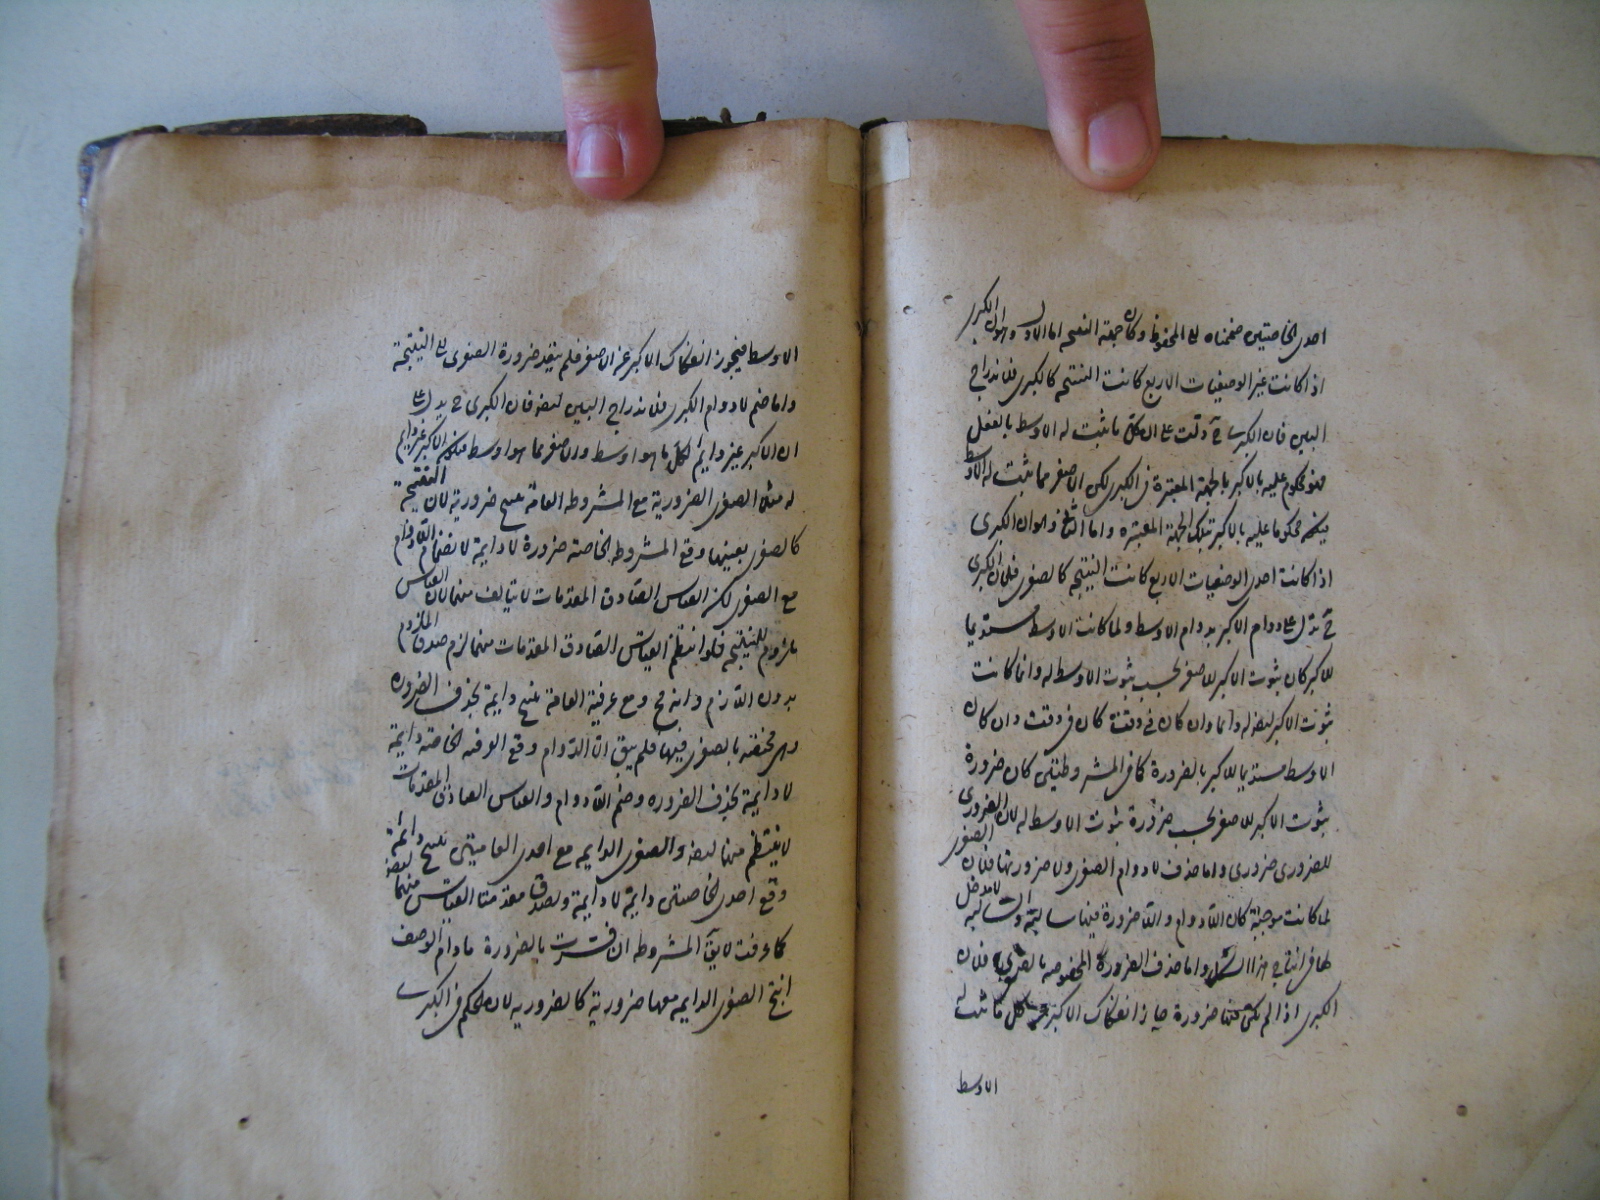 احدى الخاصتين ضممناه الى المحفوظ وكان جهة النتيجة اما الاول وهو ان الكبرى
اذا كانت غير الوصفيات الاربع كانت النتيجة كالكبرى فلاندراج
البين فان الكبرى ح دلت على ان كل ما ثبت له الاوسط بالفعل
فهو محكوم عليه بالاكبر بالجهة المعتبرة فى الكبرى لكن الاصغر مما ثبت له الاوسط
فيكون محكوما عليه بالاكبر بتلك الجهة المعتبره واما الثانى وهو ان الكبرى
اذا كانت احدى الوصفيات الاربع كانت النتيجة كالصغرى فلان الكبرى
ح تدل على دوام الاكبر بدوام الاوسط ولما كانت الاوسط مستديما
للاكبر كان ثبوت الاكبر للاصغر بحسب ثبوت الاوسط له وانما كانت
ثبوت الاكبر ايضا له دائما وان كان فى وقت كان فى وقت وان كان
الاوسط مستديما للاكبر بالضرورة كما فى المشروطتين كان ضرورة
ثبوت الاكبر للاصغر بحسب ضرورة ثبوت الاوسط له لان الضرورى
للضرورى ضرورى واما حذف لا دوام الصغرى ولا ضرورتها فلان الصغرى
لما كانت موجبة كان اللادوام واللاضرورة فيها سالبة والسالبة لا مدخل
لها فى انتاج هذا الشكل واما حذف الضرورة المخصوصه بالصغرى فلان
الكبرى اذا لم تكن فيها ضرورة جاز انفكاك الاكبر عن كل ما ثبت له
الاوسط
الاوسط فيجوز انفكاك الاكبر عن الاصغر فلم يتعد ضرورة الصغرى الى النتيجة
واما ضم لا دوام الكبرى فلاندراج البين ايضا فان الكبرى ح يدل على
ان الاكبر غير دايم لكل ما هو اوسط والاصغر مما هو اوسط فيكون الاكبر غير دايم
له مثلا الصغرى الضرورية مع المشروطه العامة ينتج ضرورية لان النتيجة
كالصغرى بعينها ومع المشروطه الخاصة ضرورة لا دايمة لانضمام اللادوام
مع الصغرى لكن القياس الصادق المقدمات لا يتالف منهما لان القياس
ملزوم للنتيجة فلو انتظم القياس الصادق المقدمات منهما لزم صدق الملزوم
بدون اللازم وانه مح ومع عرفية العامة ينتج دايمة بحذف الضروره
وهى مختصة بالصغرى فيها فلم يبق الا الدوام ومع العرفيه الخاصة دايمة
لا دايمة بحذف الضروره وضم اللادوام والقياس الصادق المقدمات
لا ينتظم منهما ايضا والصغرى الدايمه مع احدى العامتين ينتج دائمة
ومع احدى الخاصتين دايمة لا دايمة ولصدق مقدمتا القياس منهما ايضا
كما عرفت لا يق المشروطه ان فسرت بالضرورة مادام الوصف
انتج الصغرى الدايمه معها ضرورية كالضروريه لان الحكم فى الكبرى